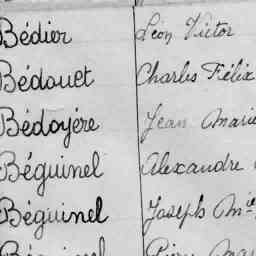 Bédier Léon Victor
Bédouet Charles Félix
Bédoyére Jean Marie
Béguinel Alexandre
Béguinel Joseph Mie